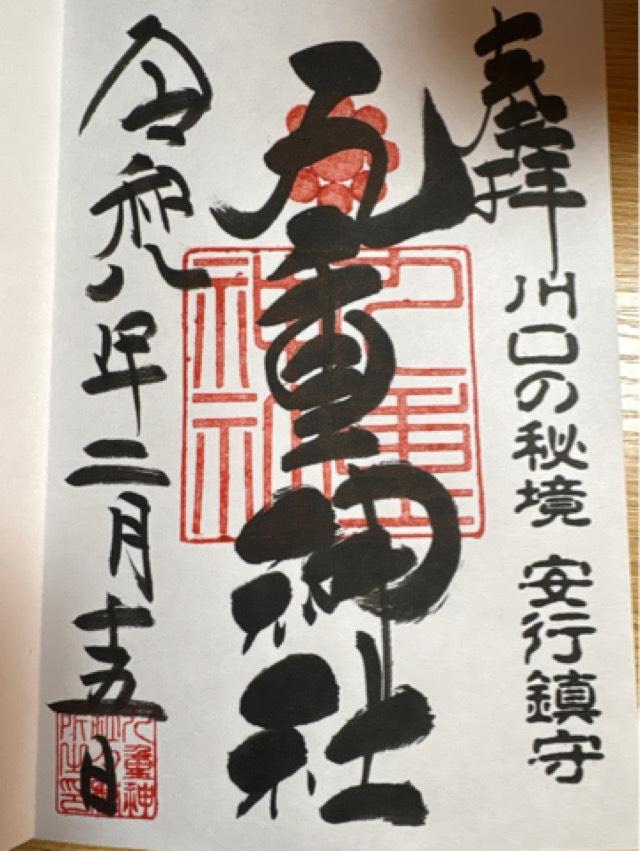 奉拝
川口の秘境 安行鎮守
九重神社
九重神社
令和八年二月十五日